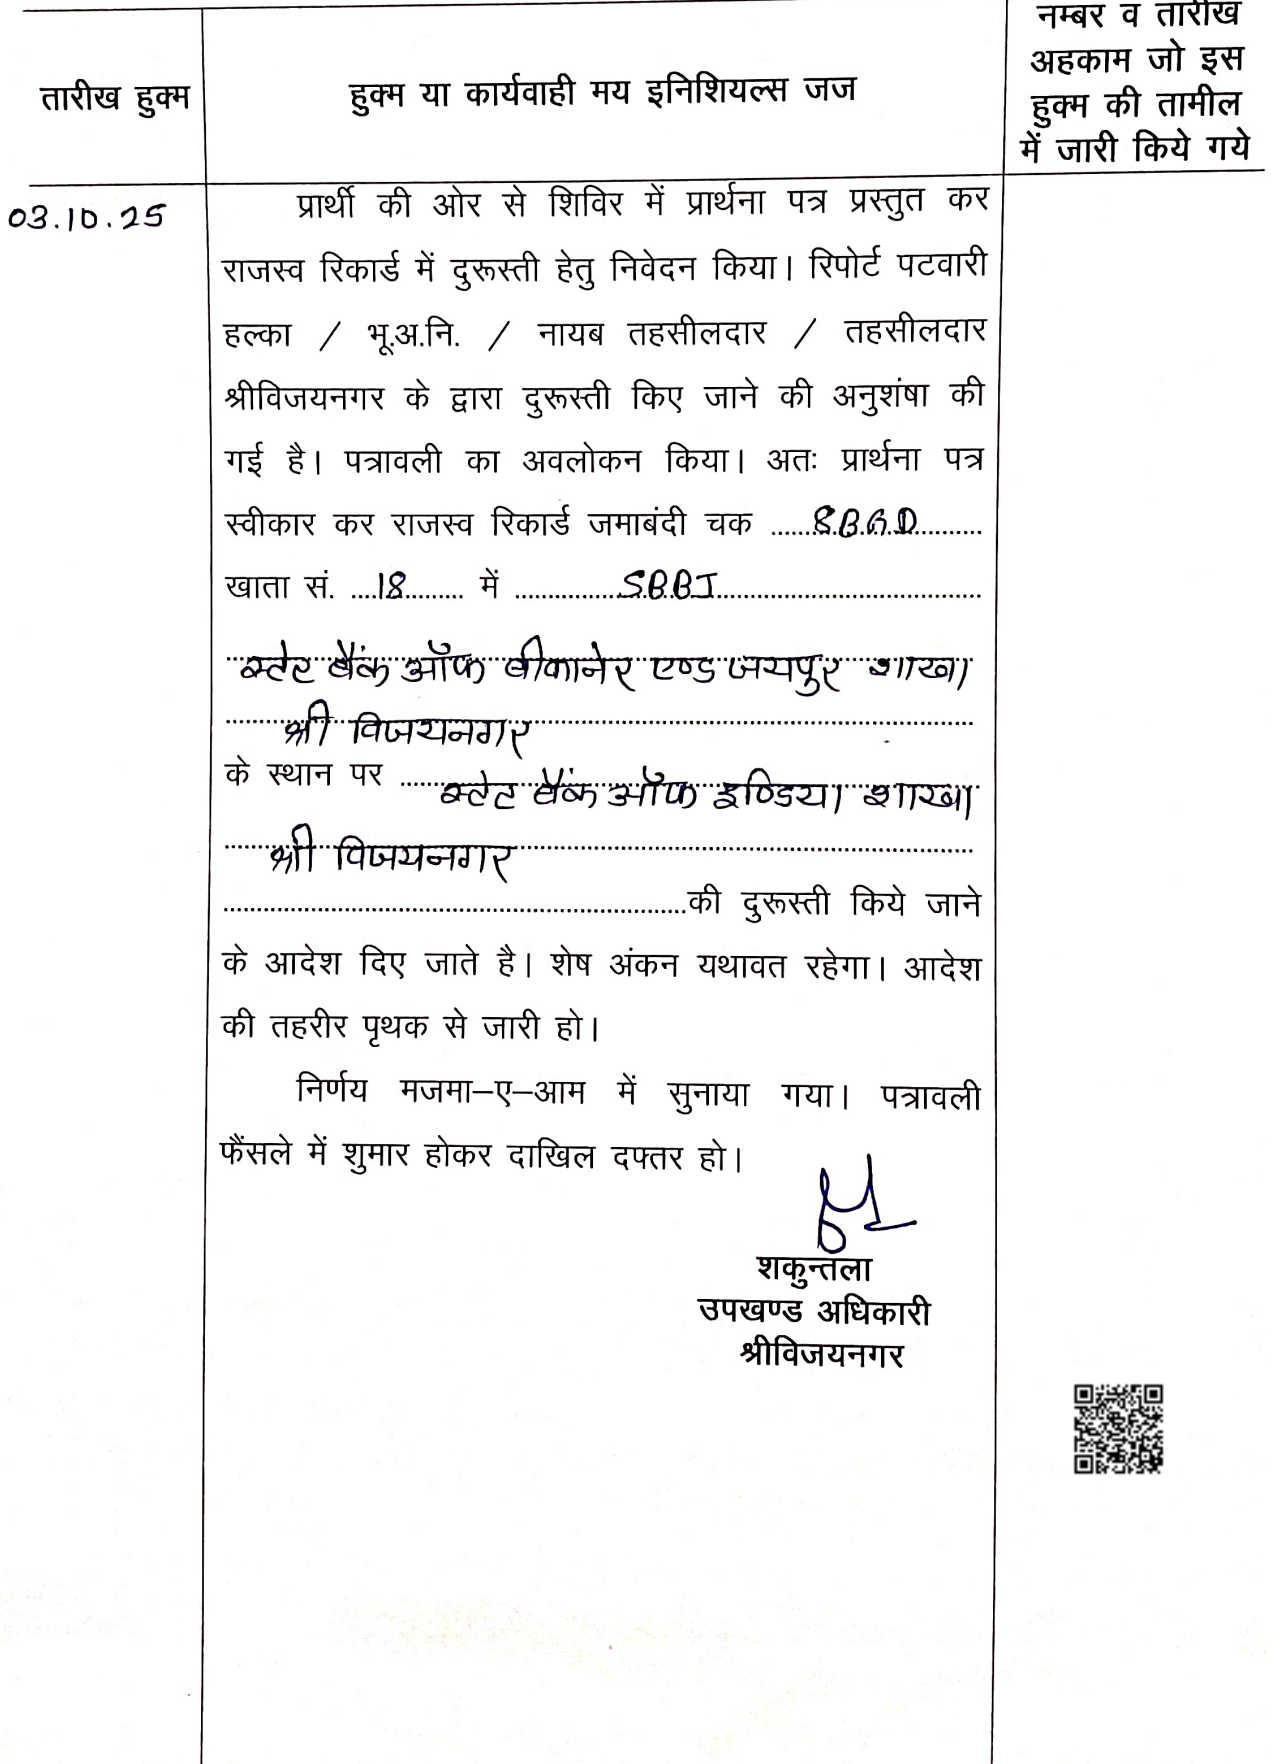 तारीख हुक्म
हुक्म या कार्यवाही मय इनिशियल्स जज
नम्बर व तारीख
अहकाम जो इस
हुक्म की तामील
में जारी किये गये
03.10.25
प्रार्थी की ओर से शिविर में प्रार्थना पत्र प्रस्तुत कर
राजस्व रिकार्ड में दुरूस्ती हेतु निवेदन किया। रिपोर्ट पटवारी
हल्का / भू.अ.नि. / नायब तहसीलदार / तहसीलदार
श्रीविजयनगर के द्वारा दुरूस्ती किए जाने की अनुशंषा की
गई है। पत्रावली का अवलोकन किया। अतः प्रार्थना पत्र
स्वीकार कर राजस्व रिकार्ड जमाबंदी चक
खाता सं. 18 में SBBJ
स्टेट बैंक ऑफ बीकानेर एण्ड जयपुर शाखा
श्री विजयनगर
के स्थान पर स्टेट बैंक ऑफ इण्डिया शाखा
श्री विजयनगर
की दुरूस्ती किये जाने
के आदेश दिए जाते है। शेष अंकन यथावत रहेगा। आदेश
की तहरीर पृथक से जारी हो।
निर्णय मजमा–ए–आम में सुनाया गया। पत्रावली
फैंसले में शुमार होकर दाखिल दफ्तर हो।
शकुन्तला
उपखण्ड अधिकारी
श्रीविजयनगर